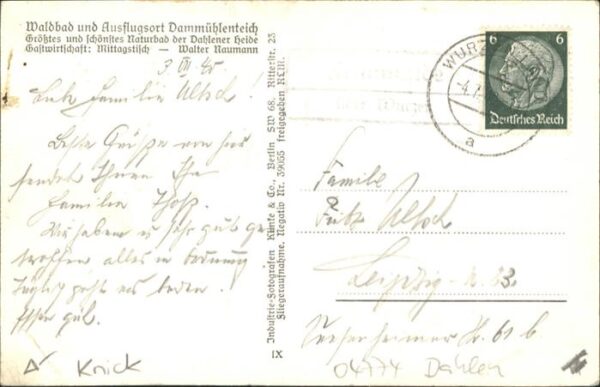 Waldbad und Ausflugsort Dammühlenteich
Größtes und schönstes Naturbad der Dahlener Heide
Gastwirtschaft: Mittagstisch — Walter Naumann
Liebe Familie
Beste Grüße von hier
sendet Ihnen Ihre
Familie
Wir haben es sehr gut ge
troffen alles in Ordnung
Täglich geht es baden.
Essen gut.
Industrie-Fotografen Klinke & Co., Berlin SW 68, Ritterstr. 23
Fliegeraufnahme, Negativ Nr. 39055 freigegeben RLM.
IX
WURZ
a
6 6
Deutsches Reich
Familie
Fritz
Leipzig
61 b
Knick
04774 Dahlen